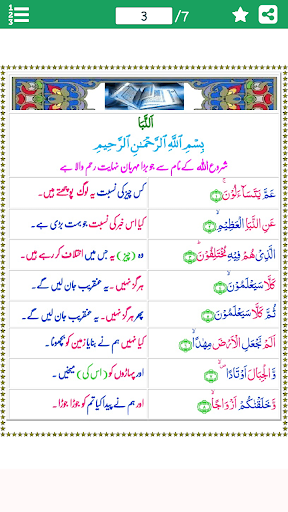 3 /7
اَلنَّبَا
بِسْمِ اللّٰهِ الرَّحْمٰنِ الرَّحِيْمِ
شروع اللہ کے نام سے جو بڑا مہربان نہایت رحم والا ہے
عَمَّ يَتَسَآءَلُوْنَ ۚ‏ ﴿۱﴾ کس چیز کی نسبت یہ لوگ پوچھتے ہیں۔
عَنِ النَّبَاِ الْعَظِيْمِۙ‏ ﴿۲﴾ کیا اس خبر کی نسبت جو بہت بڑی ہے۔
الَّذِىْ هُمْ فِيْهِ مُخْتَلِفُوْنَؕ‏ ﴿۳﴾ وہ (چیز) یہ جس میں اختلاف کر رہے ہیں۔
كَلَّا سَيَعْلَمُوْنَۙ‏ ﴿۴﴾ ہرگز نہیں۔ یہ عنقریب جان لیں گے۔
ثُمَّ كَلَّا سَيَعْلَمُوْنَ‏ ﴿۵﴾ پھر ہرگز نہیں۔ یہ عنقریب جان لیں گے۔
اَلَمْ نَجْعَلِ الْاَرْضَ مِهٰدًاۙ‏ ﴿۶﴾ کیا نہیں ہم نے بنایا زمین کو بچھونا۔
وَّالْجِبَالَ اَوْتَادًاۙ‏ ﴿۷﴾ اور پہاڑوں کو (اس کی) میخیں۔
وَّخَلَقْنٰكُمْ اَزْوَاجًاۙ‏ ﴿۸﴾ اور ہم نے پیدا کیا تم کو جوڑا جوڑا۔